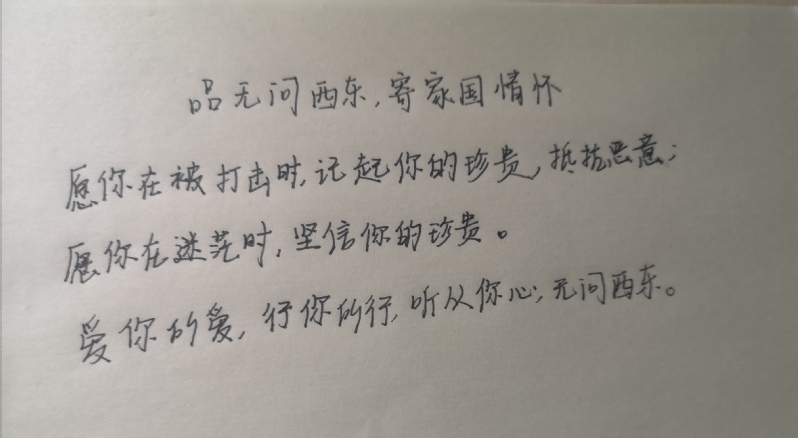 品无问西东,寄家国情怀
愿你在被打击时,记起你的珍贵,抵抗恶意;
愿你在迷茫时,坚信你的珍贵。
爱你所爱,行你所行,听从你心,无问西东。